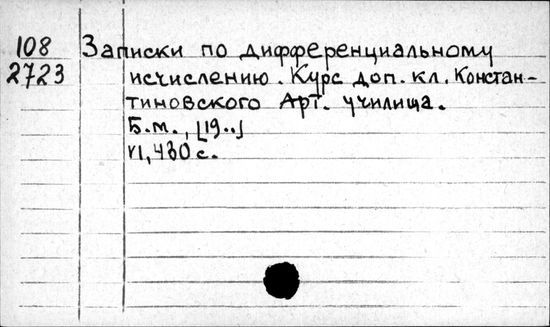 108
2723
Записки по дифференциальному
исчислению. Курс доп. кл. Констан-
тиновского Арт. училища.
Б.м., [19..]
VI, 430 с.